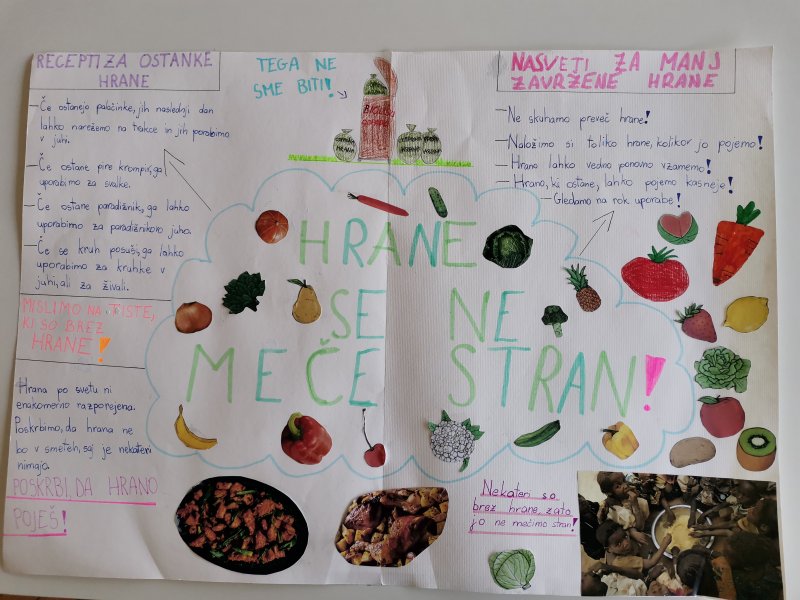 RECEPTI ZA OSTANKE
HRANE
- Če ostanejo palačinke, jih naslednji dan
lahko narežemo na trakce in jih porabimo
v juhi.
- Če ostane pire krompir, ga
uporabimo za svalke.
- Če ostane paradižnik, ga lahko
uporabimo za paradižnikovo juho.
- Če se kruh posuši, ga lahko
uporabimo za kruhke v
juhi, ali za živali.
MISLIMO NA TISTE,
KI SO BREZ
HRANE!
Hrana po svetu ni
enakomerno razporejena.
Poskrbimo, da hrana ne
bo v smeteh, saj je nekateri
nimajo.
POSKRBI, DA HRANO
POJEŠ!
TEGA NE
SME BITI!
HRANE
SE NE
MEČE STRAN!
NASVETI ZA MANJ
ZAVRŽENE HRANE
- Ne skuhamo preveč hrane!
- Naložimo si toliko hrane, kolikor jo pojemo!
- Hrano lahko vedno ponovno vzamemo!
- Hrano, ki ostane, lahko pojemo kasneje!
- Gledamo na rok uporabe!
Nekateri so
brez hrane, zato
jo ne mečimo stran!